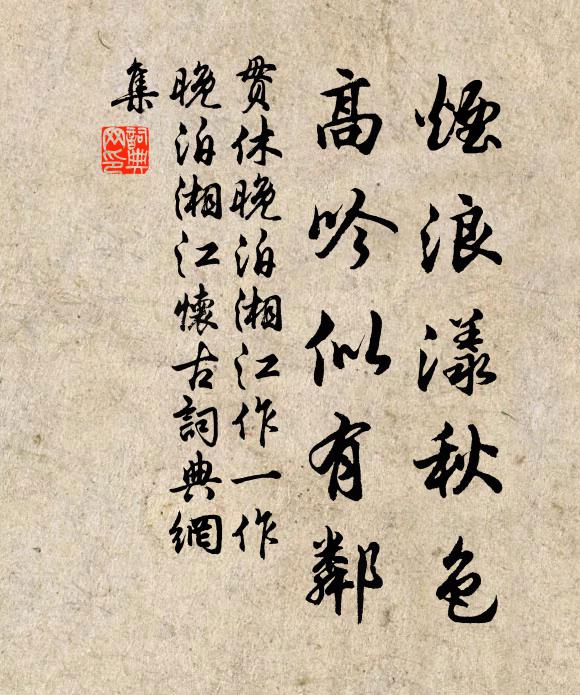 煙浪漾秋色
高吟似有鄰
貫休晚泊湘江作一作
晚泊湘江懷古詞典網
集
詞典
网印